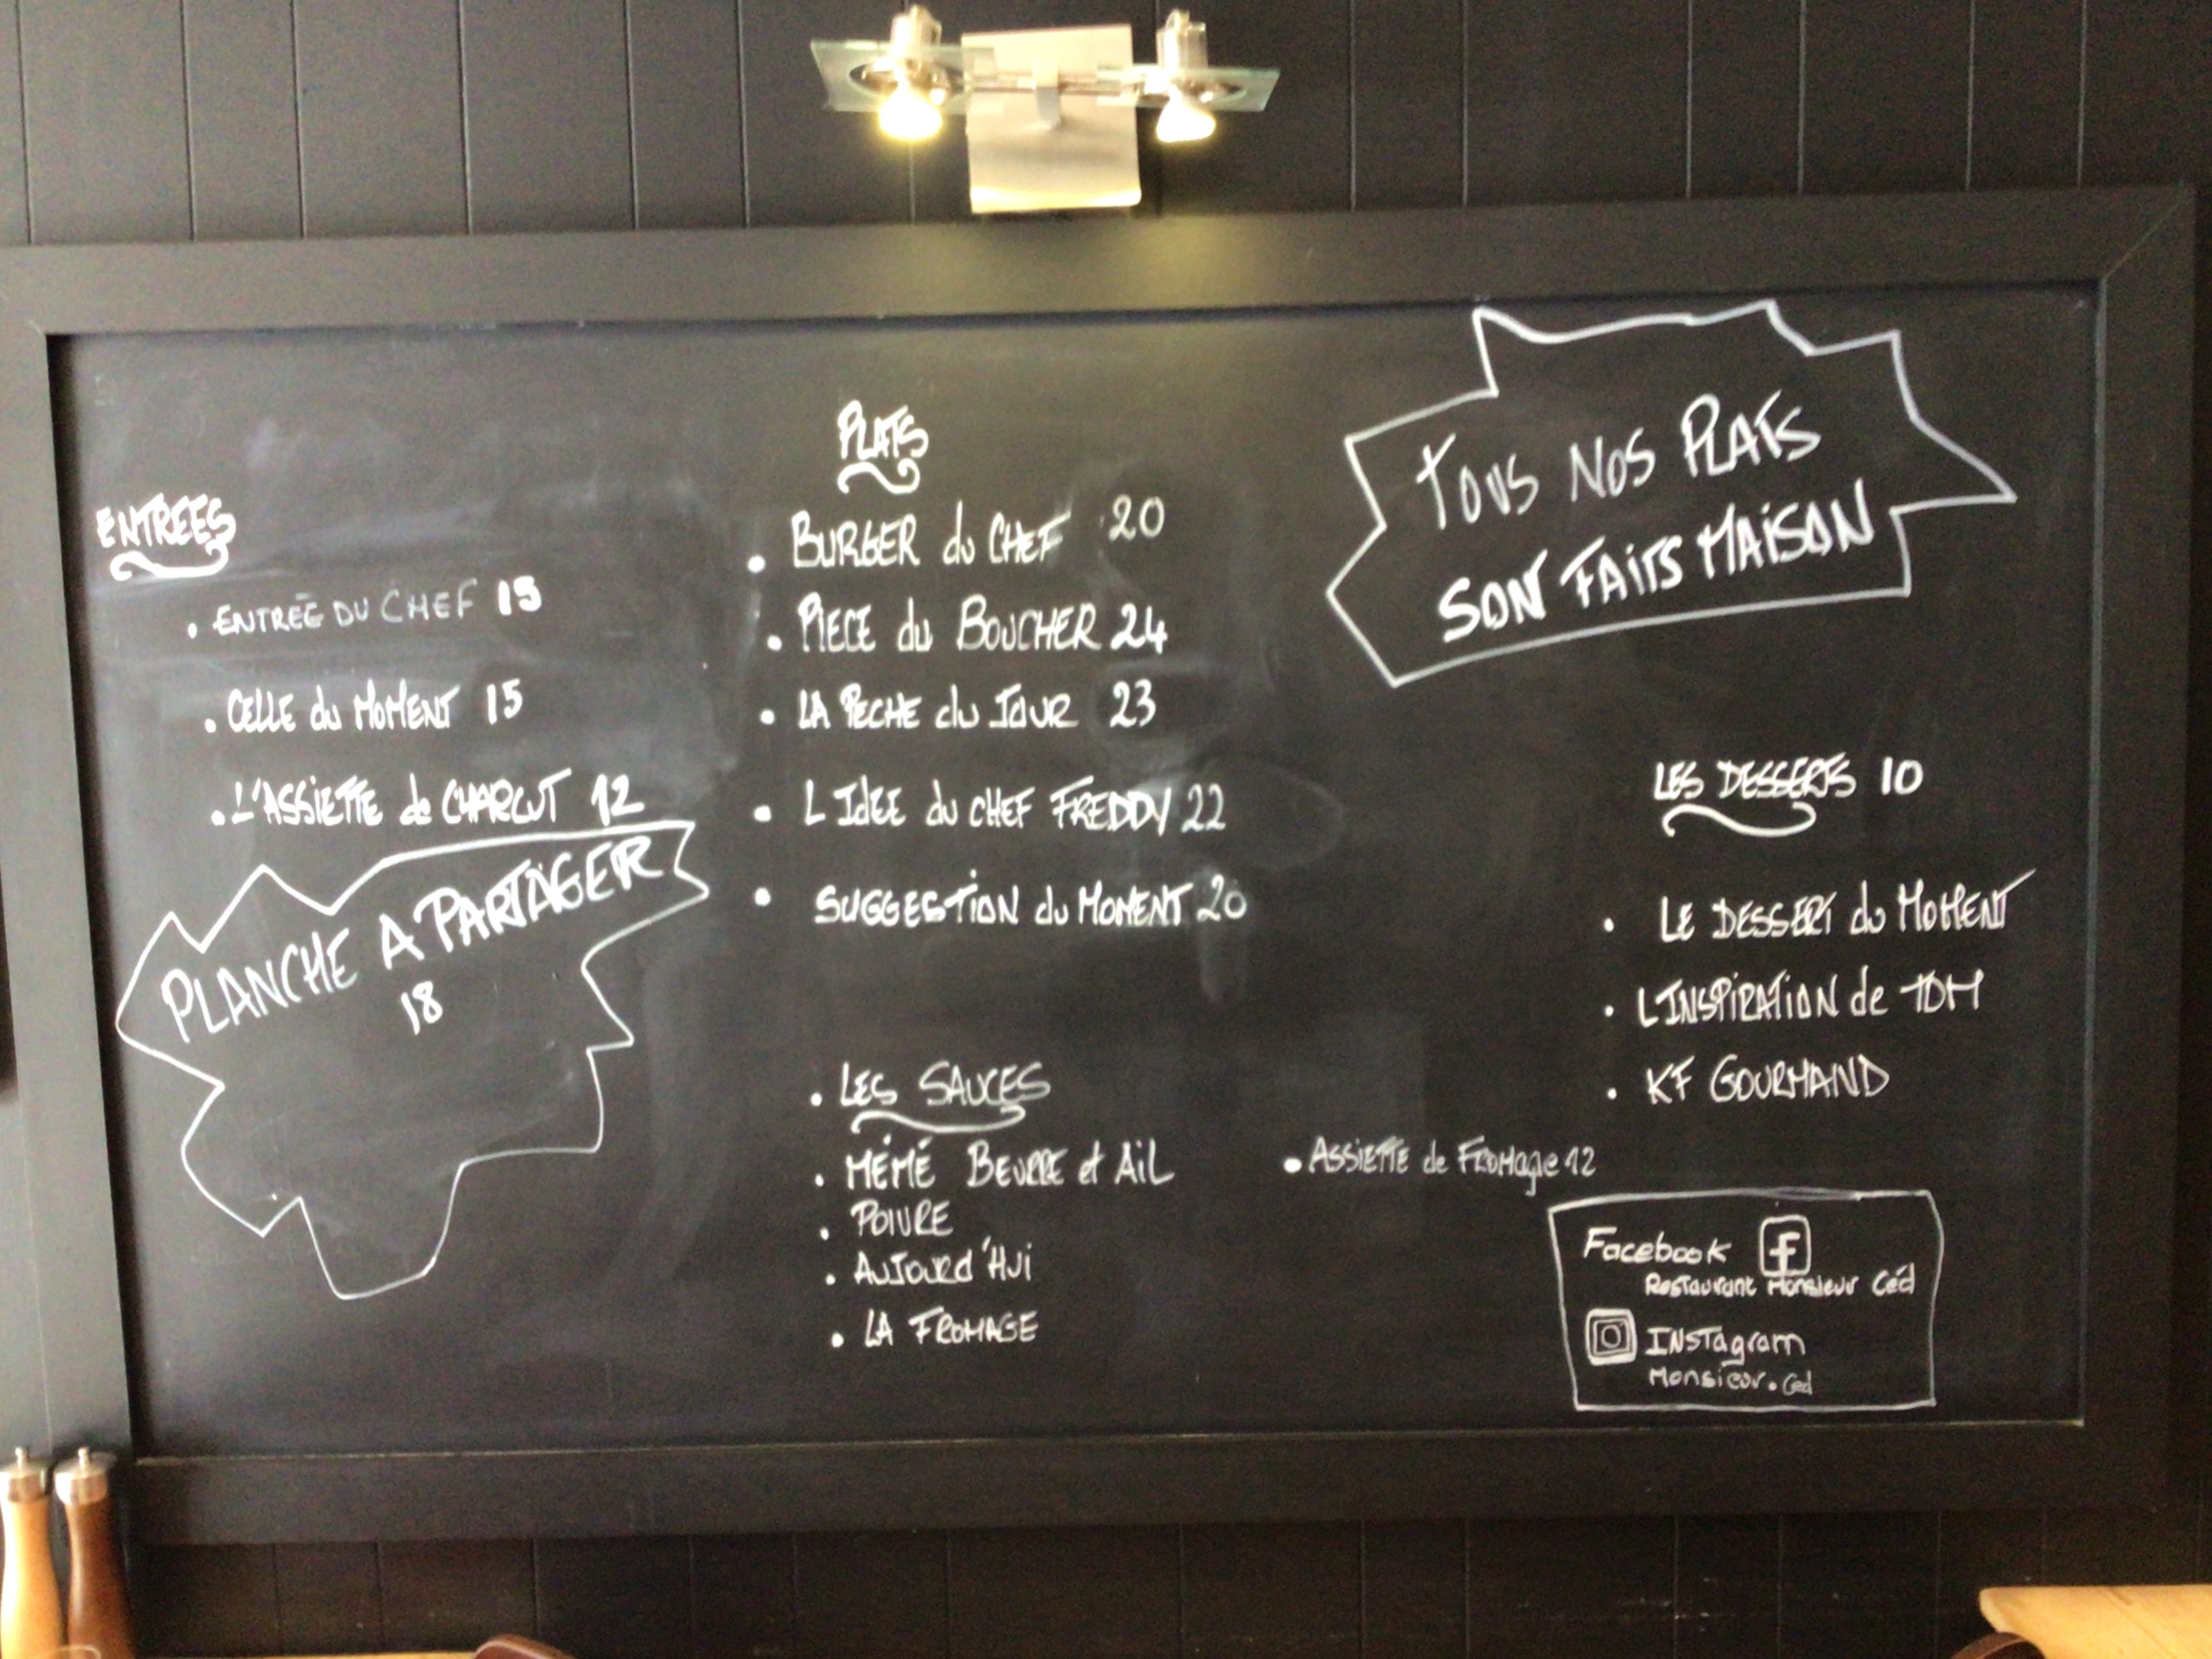 ENTREES
. ENTRÉE DU CHEF 15
. CELLE du MOMENT 15
. L'ASSIETTE de CHARCUT 12
PLANCHE A PARTAGER
18
PLATS
. BURGER du CHEF 20
. PIECE du BOUCHER 24
. LA PECHE du JOUR 23
. L IDEE du CHEF FREDDY 22
. SUGGESTION du MOMENT 20
. LES SAUCES
. MÉMÉ BEURRE et AIL
. POIVRE
. AUJOURD'HUI
. LA FROMAGE
TOUS NOS PLATS
SONT FAITS MAISON
LES DESSERTS 10
. LE DESSERT du MOMENT
. L'INSPIRATION de TOM
. KF GOURMAND
. ASSIETTE de FROMAGE 12
Facebook f
Restaurant Monsieur Céd
INSTagram
Monsieur.Céd